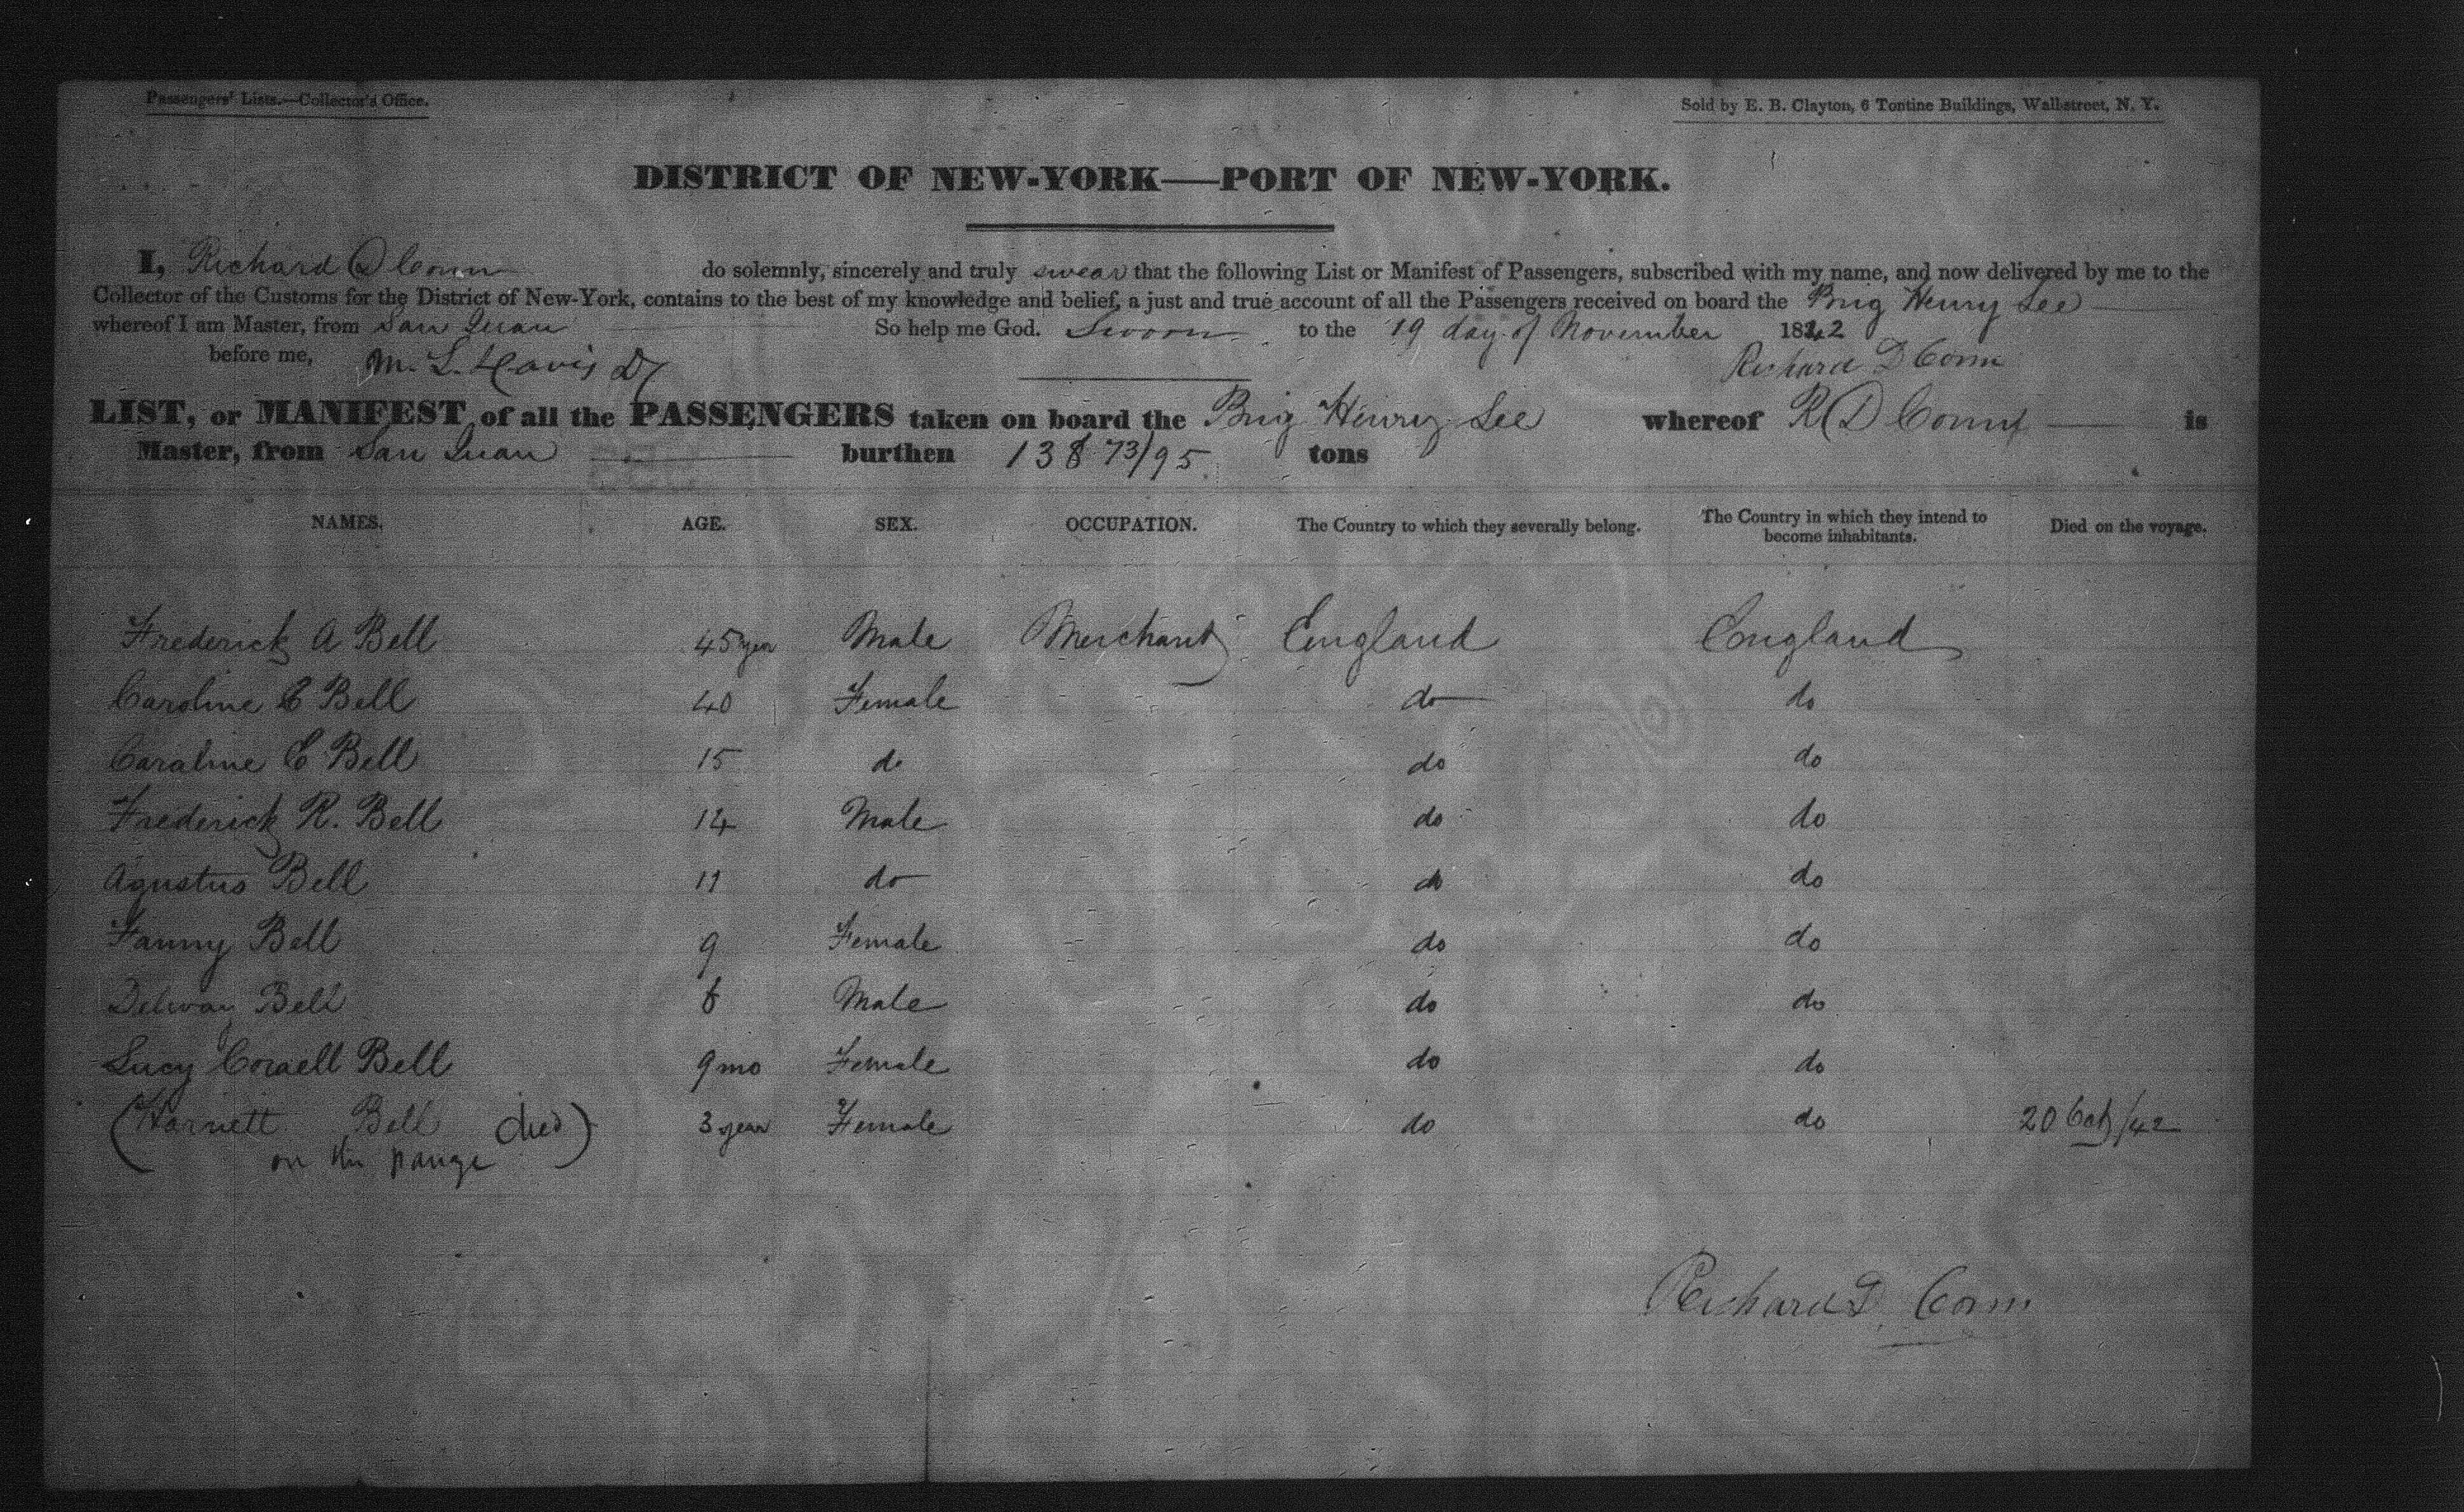 Passengers' Lists.—Collector's Office.
Sold by E. B. Clayton, 6 Tontine Buildings, Wall-street, N. Y.
DISTRICT OF NEW-YORK—PORT OF NEW-YORK.
I, Richard D Conn do solemnly, sincerely and truly swear that the following List or Manifest of Passengers, subscribed with my name, and now delivered by me to the
Collector of the Customs for the District of New-York, contains to the best of my knowledge and belief, a just and true account of all the Passengers received on board the Brig Henry Lee
whereof I am Master, from San Juan So help me God. Sworn to the 19 day of November 1842
before me, M. L. Davis Dy Richard D Conn
LIST, or MANIFEST of all the PASSENGERS taken on board the Brig Henry Lee whereof R D Conn is
Master, from San Juan burthen 138 73/95 tons
NAMES. AGE. SEX. OCCUPATION. The Country to which they severally belong. The Country in which they intend to become inhabitants. Died on the voyage.
Frederick A Bell 45 year Male Merchant England England
Caroline C Bell 40 Female do do
Caraline C Bell 15 do do do
Frederick R. Bell 14 Male do do
Agustus Bell 11 do do do
Fanny Bell 9 Female do do
Bell 6 Male do do
Lucy Bell 9 mo Female do do
(Harriett Bell died) 3 year Female do do 20 Oct/42
on the
Richard D. Conn